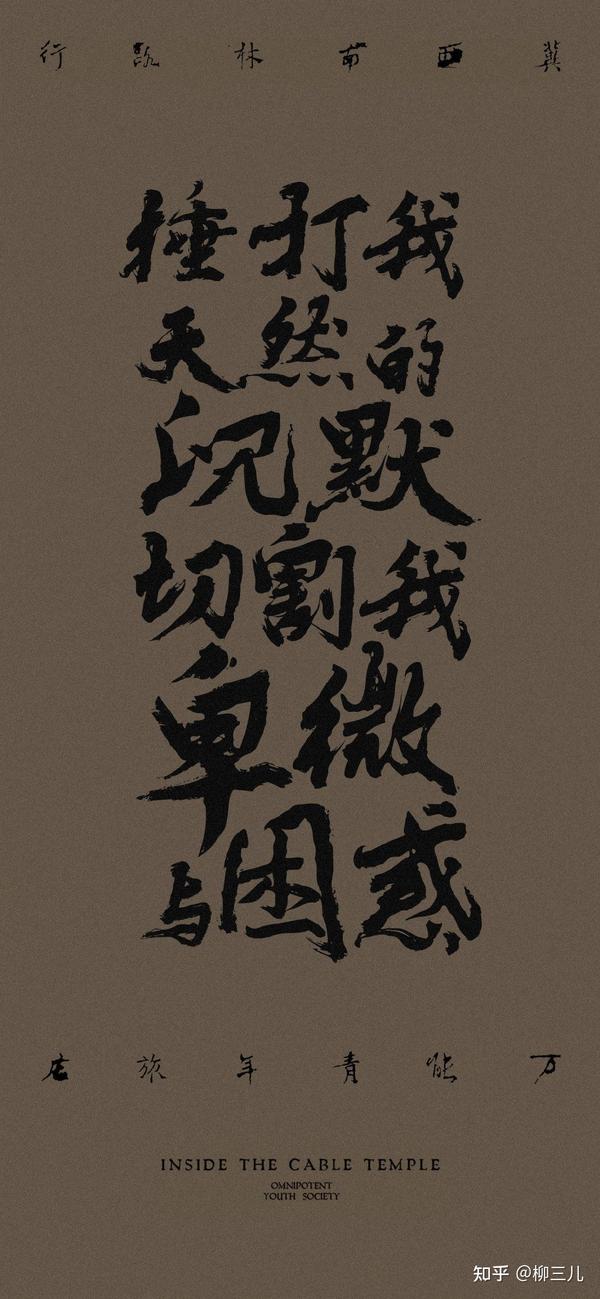 冀西南林路行
捶打我
天然的
沉默
切割我
卑微
与困惑
万能青年旅店
INSIDE THE CABLE TEMPLE
OMNIPOTENT
YOUTH SOCIETY
知乎 @柳三儿